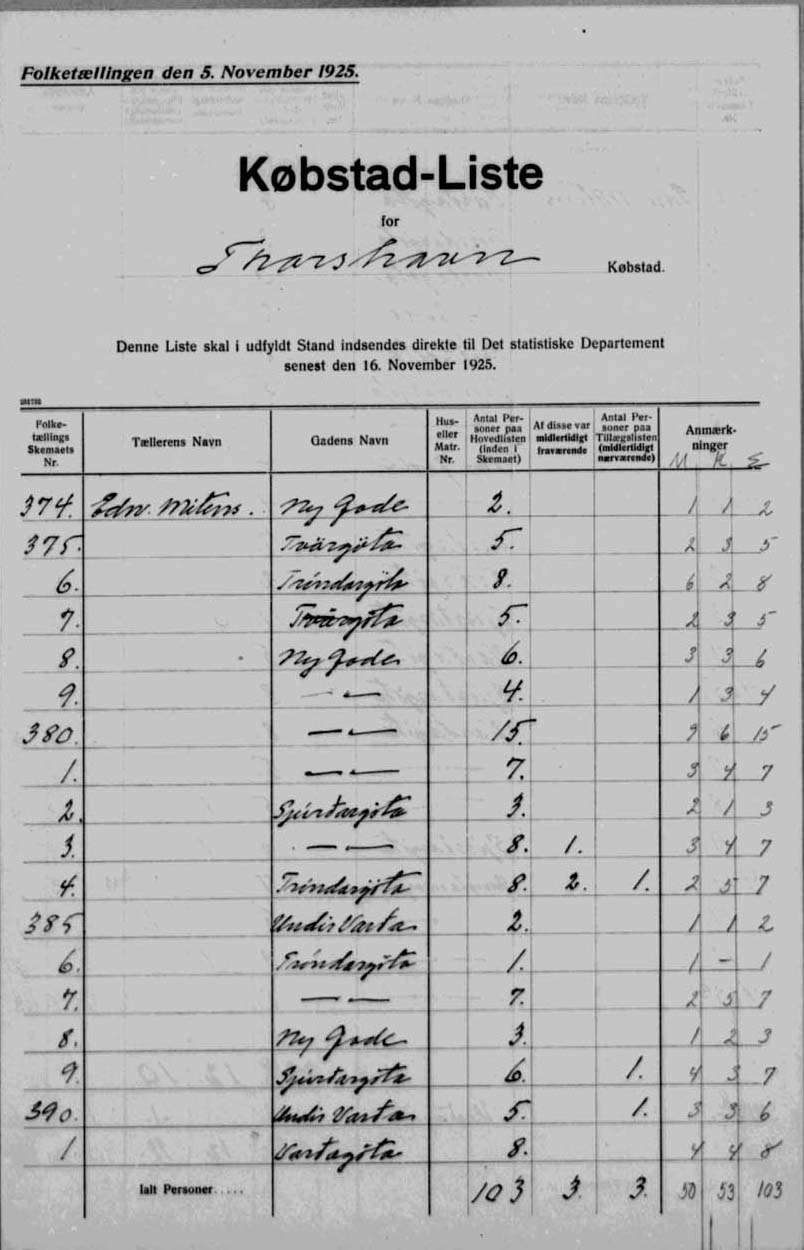 Folketællingen den 5. November 1925.
Købstad-Liste
for
Thorshavn Købstad.
Denne Liste skal i udfyldt Stand indsendes direkte til Det statistiske Departement
senest den 16. November 1925.
Folke-
tællings
Skemaets
Nr.
Tællerens Navn
Gadens Navn
Hus-
eller
Matr.
Nr.
Antal Per-
soner paa
Hovedlisten
(inden i
Skemaet)
Af disse var
midlertidigt
fraværende
Antal Per-
soner paa
Tillægslisten
(midlertidigt
nærværende)
Anmærk-
ninger
M. K. E
374. Edw. Mitens. Ny Gade 2. 1 1 2
375. Tvørgøta 5. 2 3 5
6. Tróndargøta 8. 6 2 8
7. Tvørgøta 5. 2 3 5
8. Ny Gade 6. 3 3 6
9. — " — 4. 1 3 4
380. — " — 15. 9 6 15
1. — " — 7. 3 4 7
2. Sjúrðargøta 3. 2 1 3
3. — " — 8. 1. 3 4 7
4. Tróndargøta 8. 2. 1. 2 5 7
385 Undir Varða 2. 1 1 2
6. Tróndargøta 1. 1 - 1
7. — " — 7. 2 5 7
8. Ny Gade 3. 1 2 3
9. Sjúrðargøta 6. 1. 4 3 7
390. Undir Varða 5. 1. 3 3 6
1 Varðagøta 8. 4 4 8
Ialt Personer..... 103 3. 3. 50 53 103